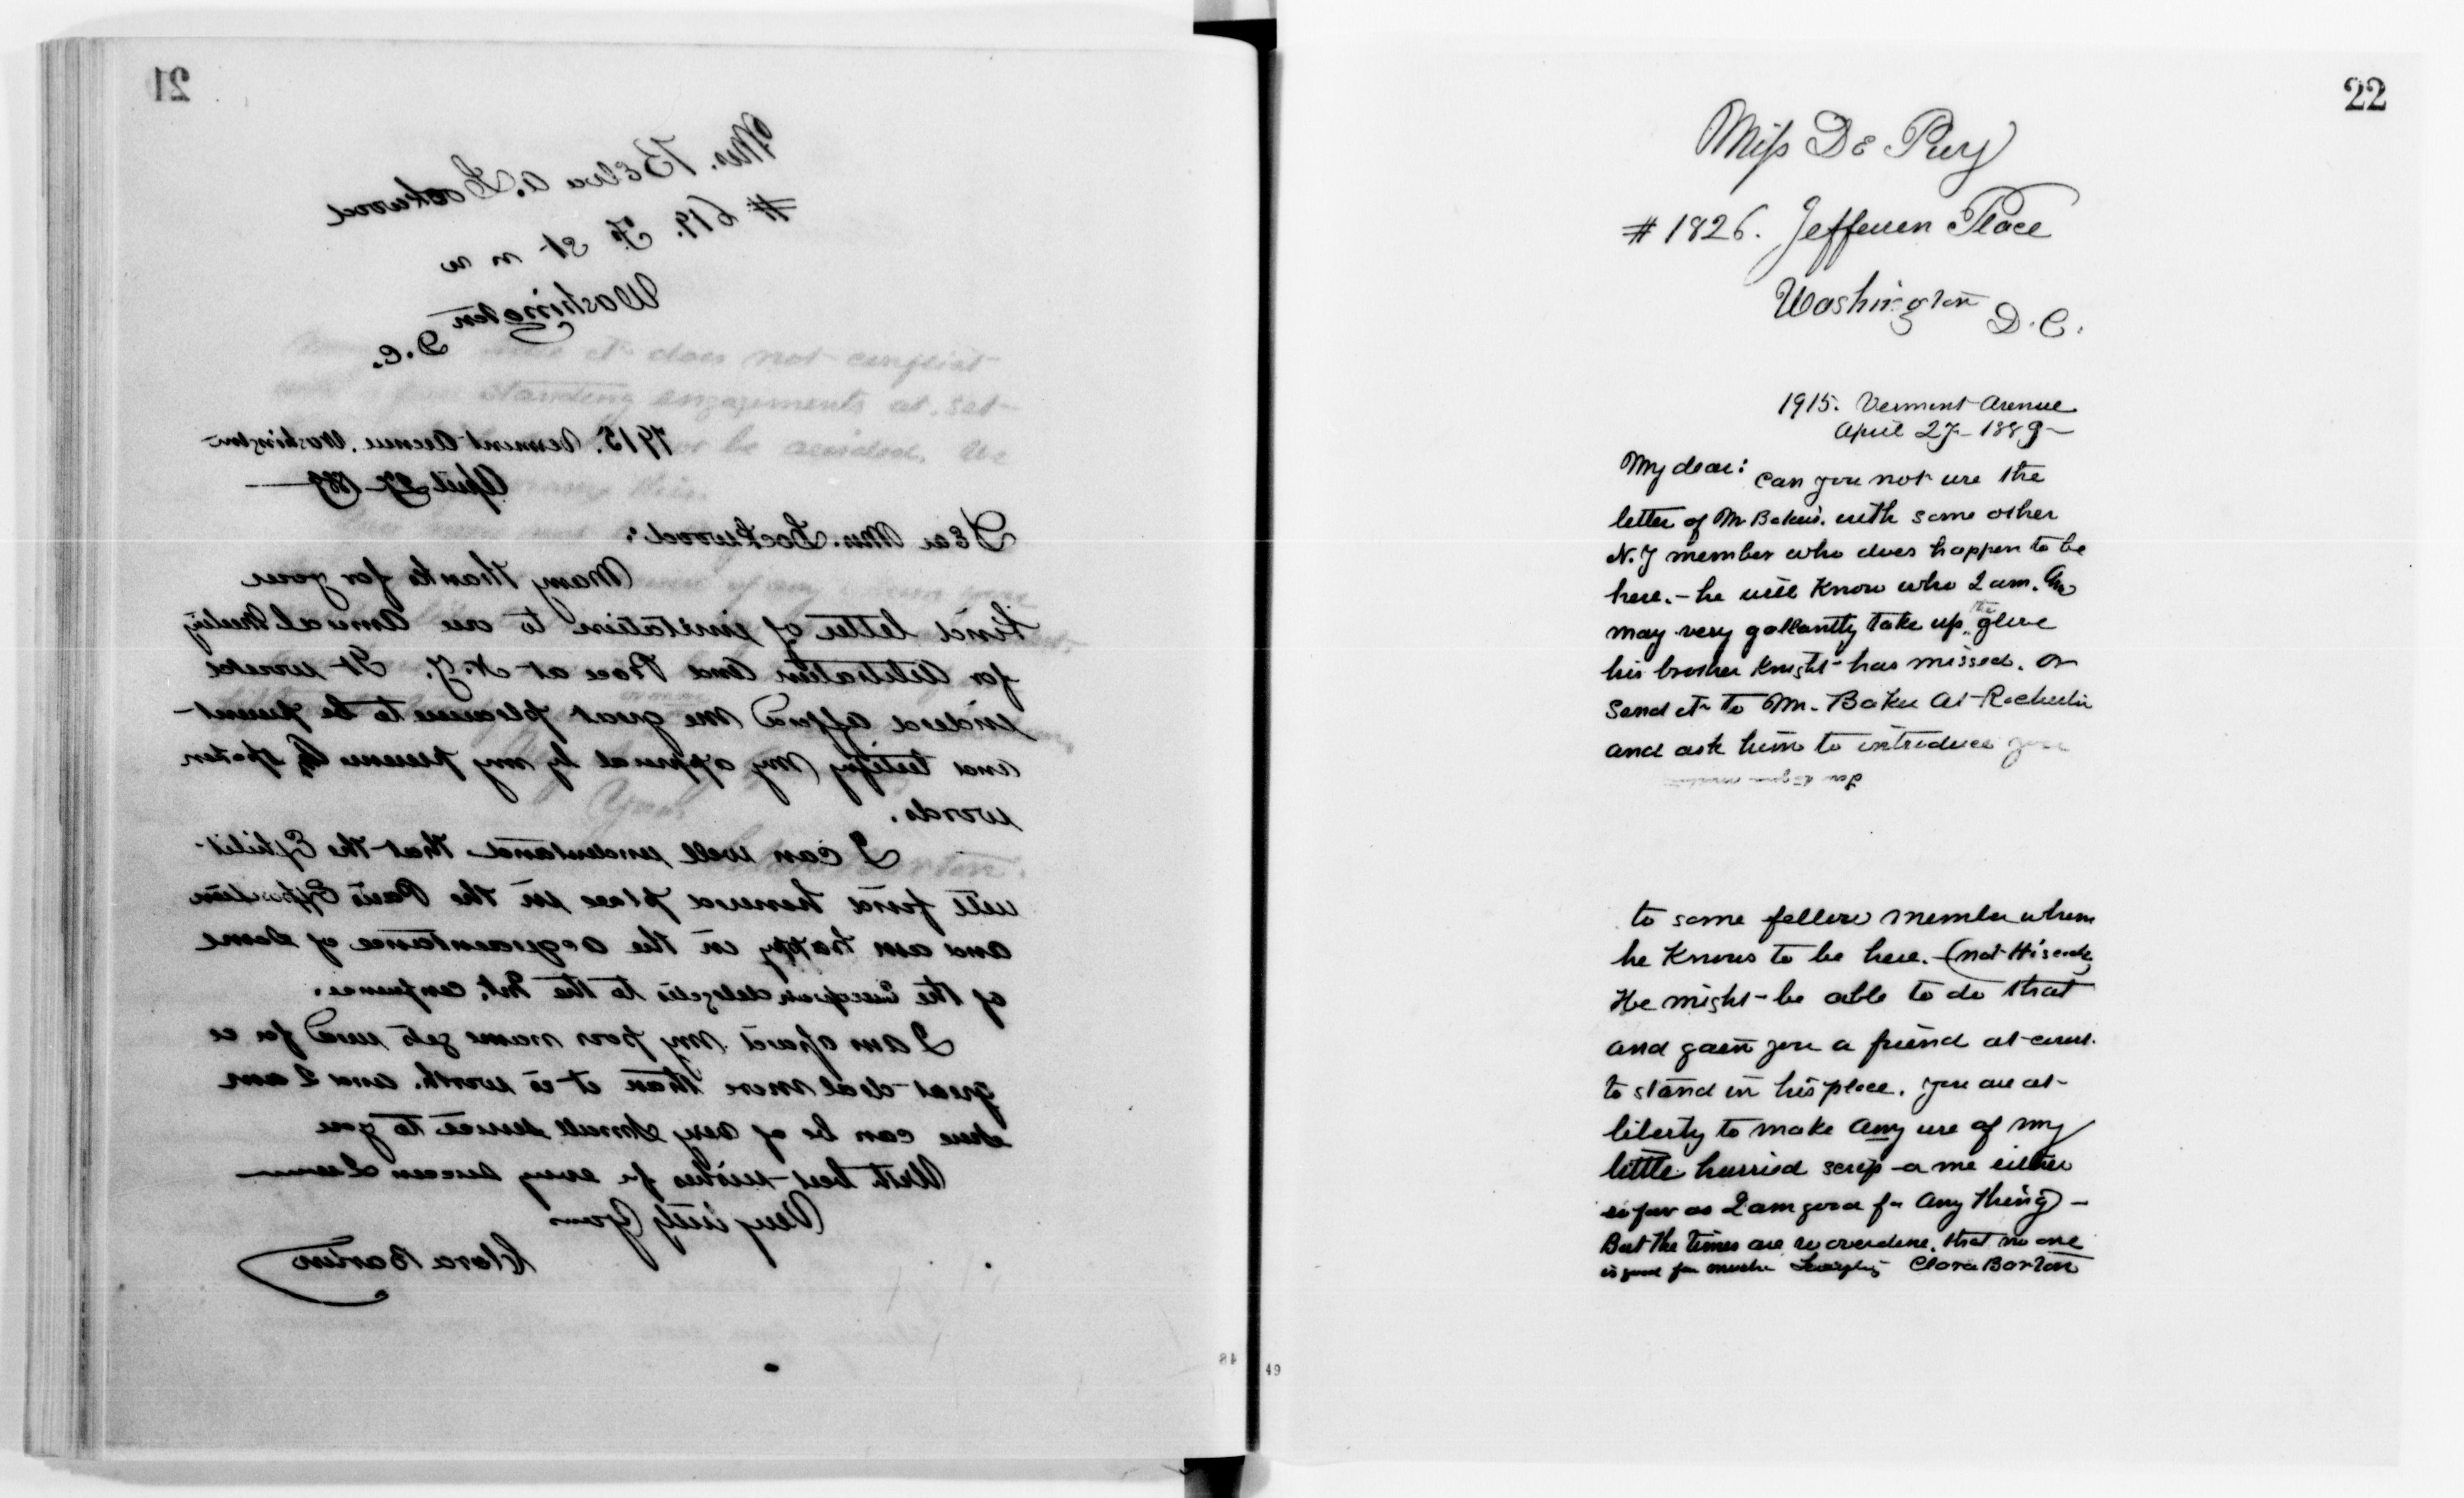 21
Mrs. Belva A. Lockwood
# 619. F. St n w
Washington
D.C.
1915. Vermont Avenue. Washington
April 27- 1889
Dear Mrs. Lockwood:
Many thanks for your
kind letter of invitation to our Annual Meeting
for Arbitration and Peace at N.Y. It would
indeed afford me great pleasure to be present
and testify my approval by my presence by spoken
words.
I can well understand that the Exhibit
will find honored place in the Paris Exposition
and am happy in the acquaintance of some
of the European delegates to the Int. conference.
I am afraid my poor name gets used for a
great deal more than it is worth. and I am
sure can be of very small service to you
With best wishes for every success I am
Very truly Yours
Clara Barton
48
22
Miss De Puy
# 1826. Jefferson Place
Washington D.C.
1915. Vermont Avenue
April 27- 1889-
My dear: can you not use the
letter of Mr Baker's. with some other
N.Y member who does happen to be
here. - he will know who I am. &
may very gallantly take up the glove
his brother knight has missed. or
send it to Mr. Baker at Rochester
and ask him to introduce you
to some fellow member whom
he knows to be here. - (not Hiscock)
He might be able to do that
and gain you a friend at court.
to stand in his place. you are at
liberty to make any use of my
little hurried scrip - or me either
so far as I am good for any thing) -
But the times are so overdone. that no one
is good for much Lovingly Clara Barton
49